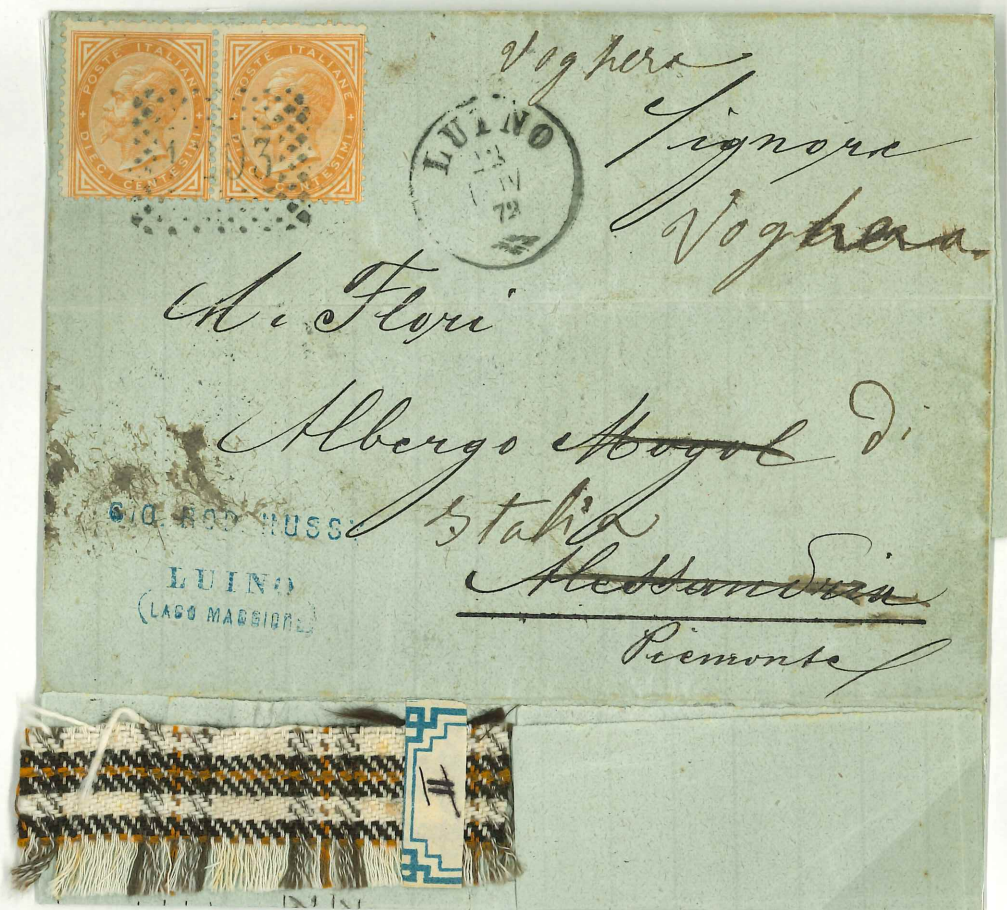 POSTE ITALIANE
DIECI CENTESIMI
POSTE ITALIANE
DIECI CENTESIMI
LUINO
72
Voghera
Signore
Voghera
A. Flori
Albergo Mogol d'
Italia
Alessandria
Piemonte
LUINO
(LAGO MAGGIORE)
II